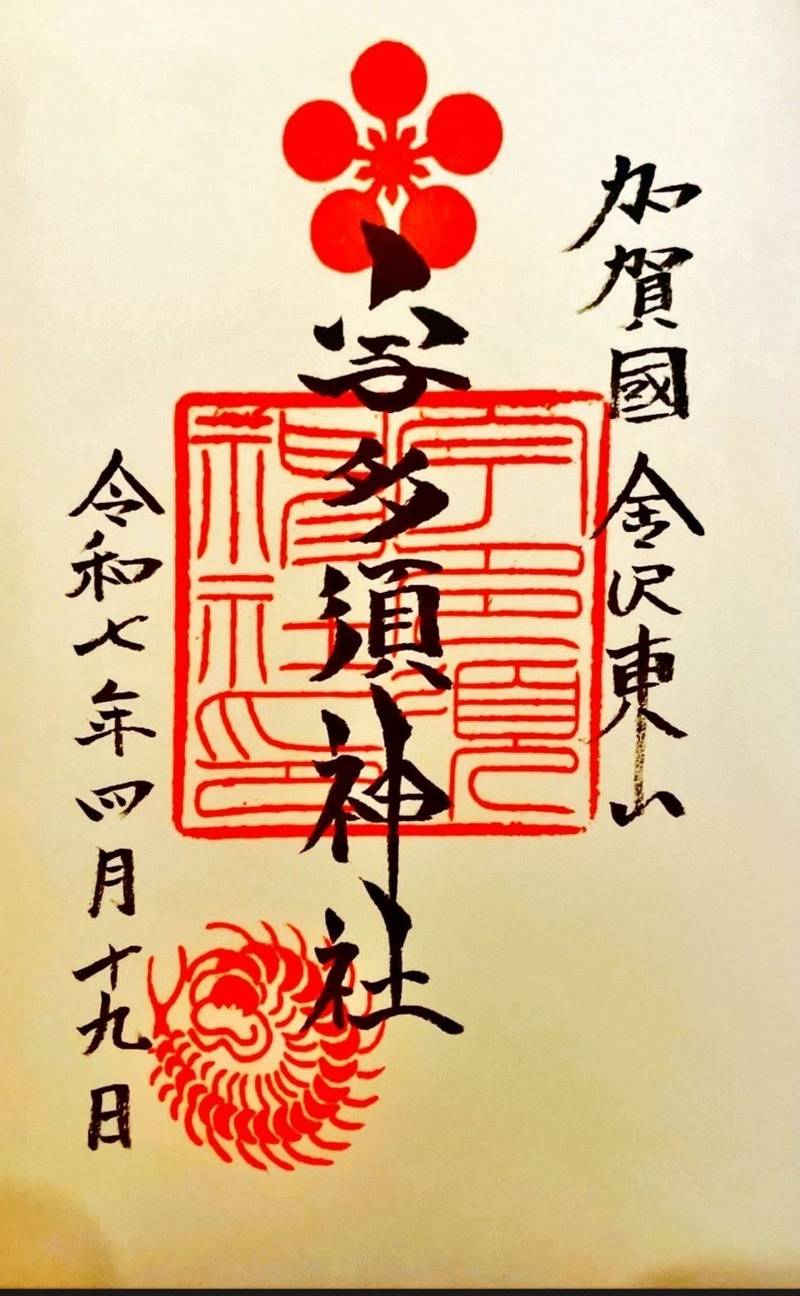 加賀國 金沢東山
宇多須神社
宇多須神社印
令和七年四月十九日